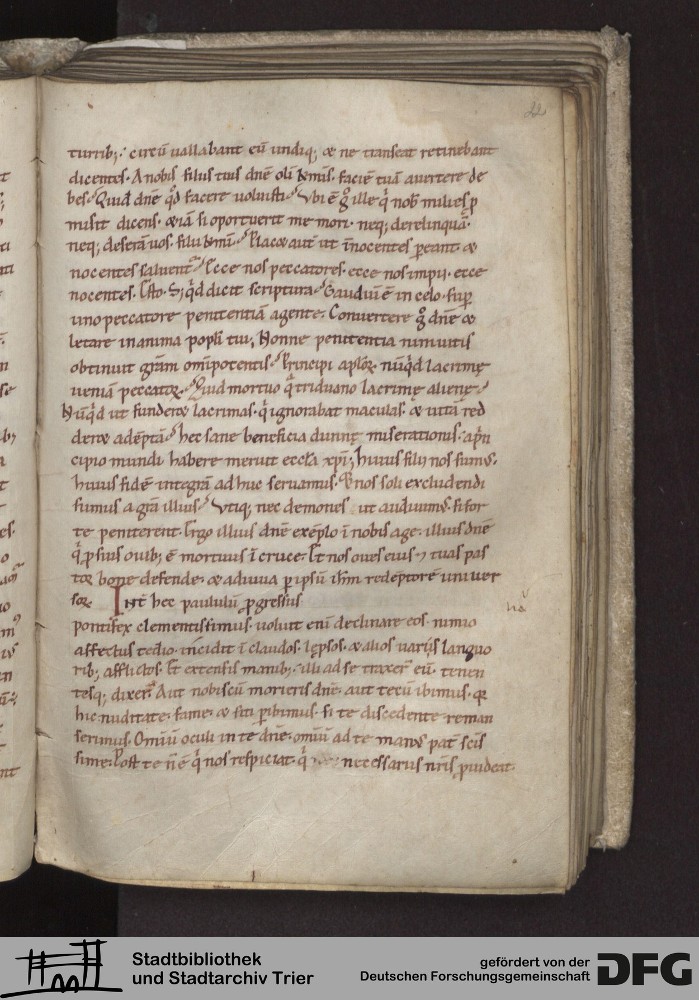 22
turrib; circū uallabant eū undiq; & ne transeat retinebant
dicentes. A nobis filius tuus dn̄e oli hōīnis. faciē tuā auertere de
bes. Quid dn̄e qd facere uoluisti. Vbi ē g ille q nob milies p
misit dicens. & iā si oportuerit me mori. neq; derelinquā.
neq; deserā uos. filii Placet aut ut īnocentes pereant. &
nocentes saluent Ecce nos peccatores. ecce nos impii. ecce
nocentes. Esto. S; qd dicit scriptura. Gaudiū ē in celo. sup
uno peccatore penitentiā agente. Conuertere g dn̄e &
letare in anima popli tui. Nonne penitentia niniuitis
obtinuit gram omīpotentis. Principi aplor. nūqd lacrimę
ueniā peccator. Quid mortuo qtriduano lacrimę alienę.
Nūqd ut funderet lacrimas. q ignorabat maculas. & uitā red
deret adēptā. hec sane beneficia diuinę miserationis. apn
cipio mundi habere meruit eccla xpi. huius filii nos sum.
huius fidē integrā ad huc seruamus. nos soli excludendi
sumus a gra illius. Vtiq; nec demones. ut audiuim. si for
te peniterent. Ergo illius dn̄e exēplo ī nobis age. illius dn̄e
q p suis ouib; ē mortuus ī cruce. Et nos oues eius. tuas pas
tor bone defende. & adiuua p ipsū ihm redēptorē uniuer
sor. Int hec paululū pgressus
pontifex clementissimus. uoluit eni declinare eos. nimio
affectus tedio. incidit ī claudos. lępsos. & alios uariis languo
rib; afflictos. Et extensis manib; illi ad se traxer eū. tenen
tesq; dixer Aut nobiscū morieris dn̄e. aut tecū ibimus. q
hic nuditate. fame. & siti peribimus. si te discedente reman
serimus. Omiū oculi in te dn̄e. omiū ad te man pat scis
sime. Post te nē q nos respiciat. q necessariis nris puideat.
Stadtbibliothek
und Stadtarchiv Trier
gefördert von der
Deutschen Forschungsgemeinschaft
DFG